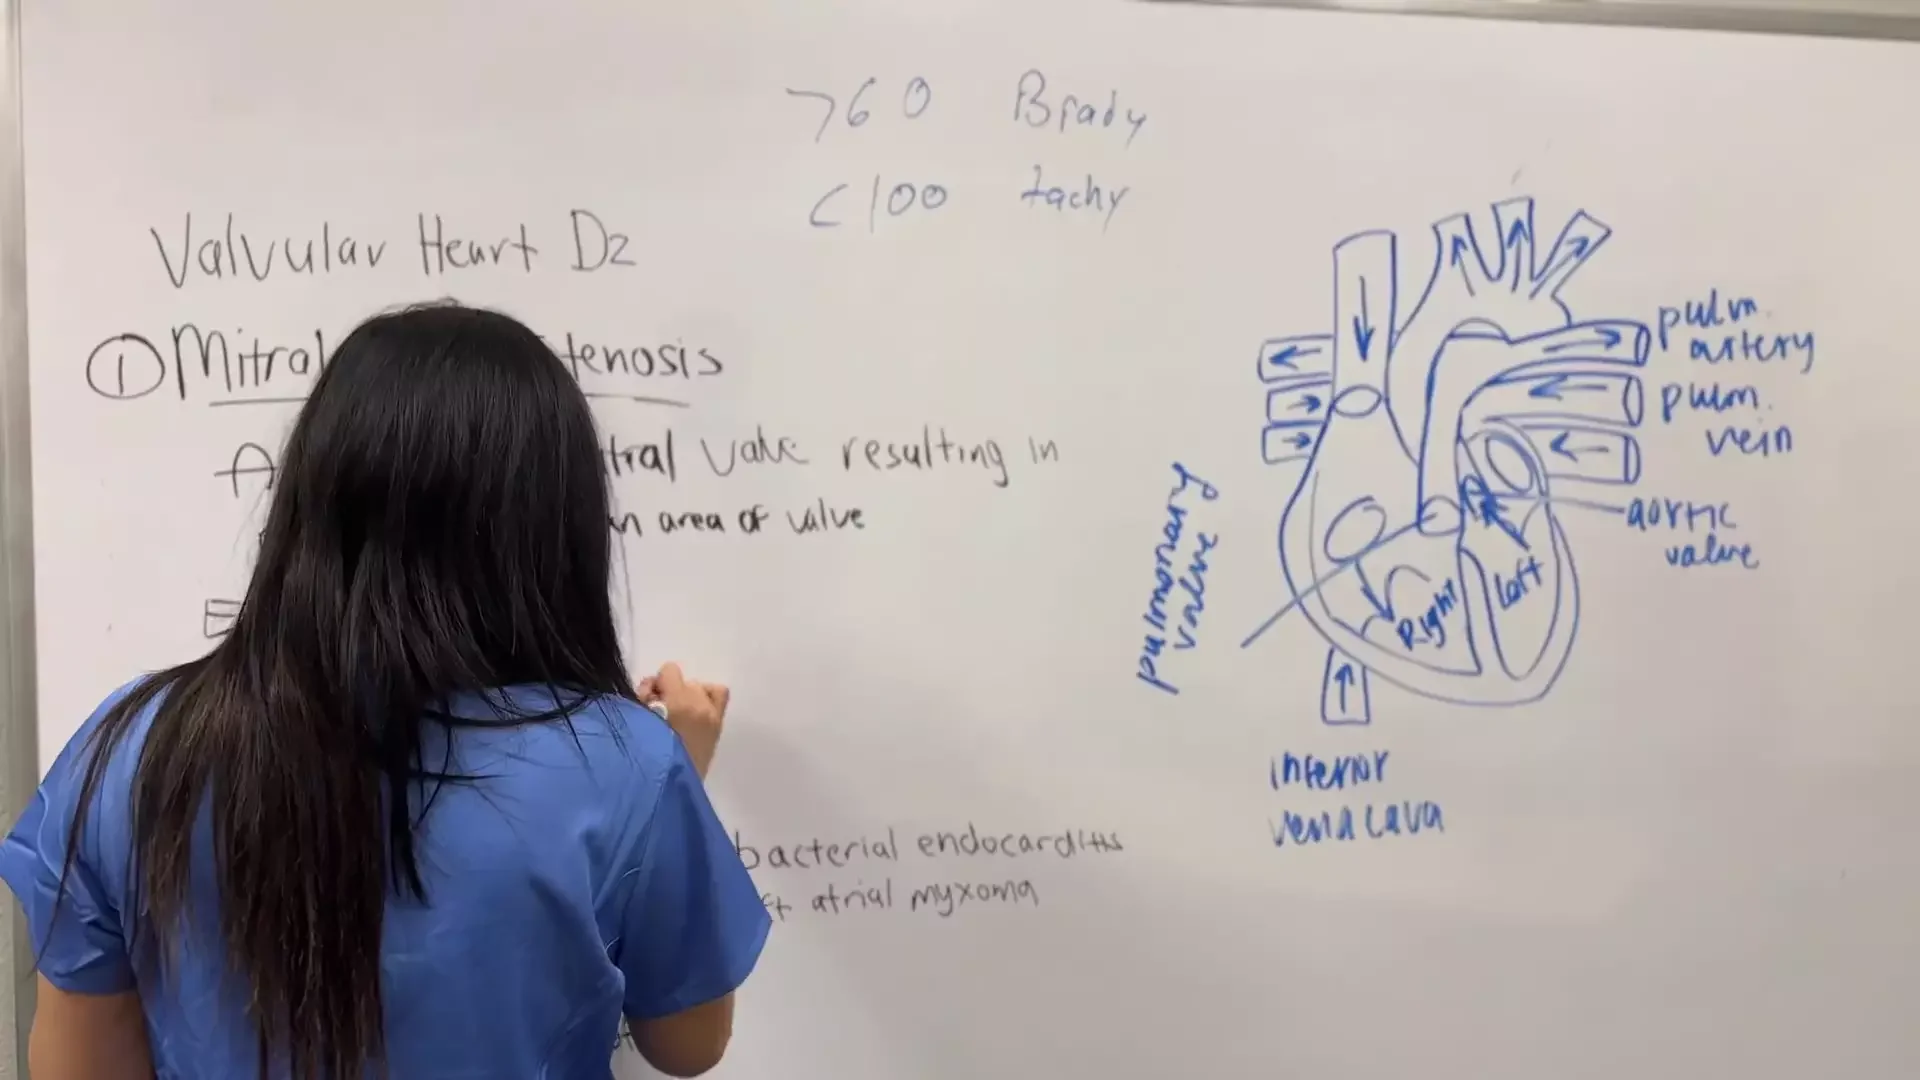 >60 Brady
<100 tachy
Valvular Heart Dz
① Mitral tenosis
tral valve resulting in
an area of valve
bacterial endocarditis
ft atrial myxoma
pulm.
artery
pulm.
vein
aortic
valve
pulmonary
valve
Right
Left
inferior
vena cava